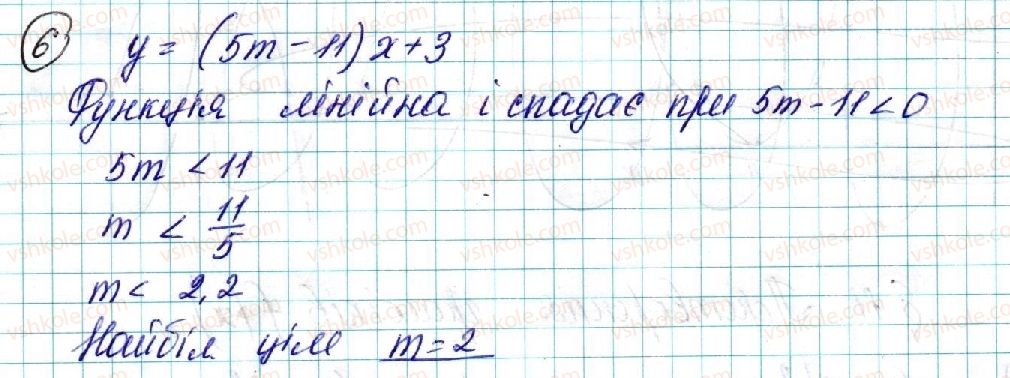 6 y = (5m - 11)x + 3
Функція лінійна і спадає при 5m - 11 < 0
5m < 11
m < 11/5
m < 2,2
Найбіл ціле m = 2